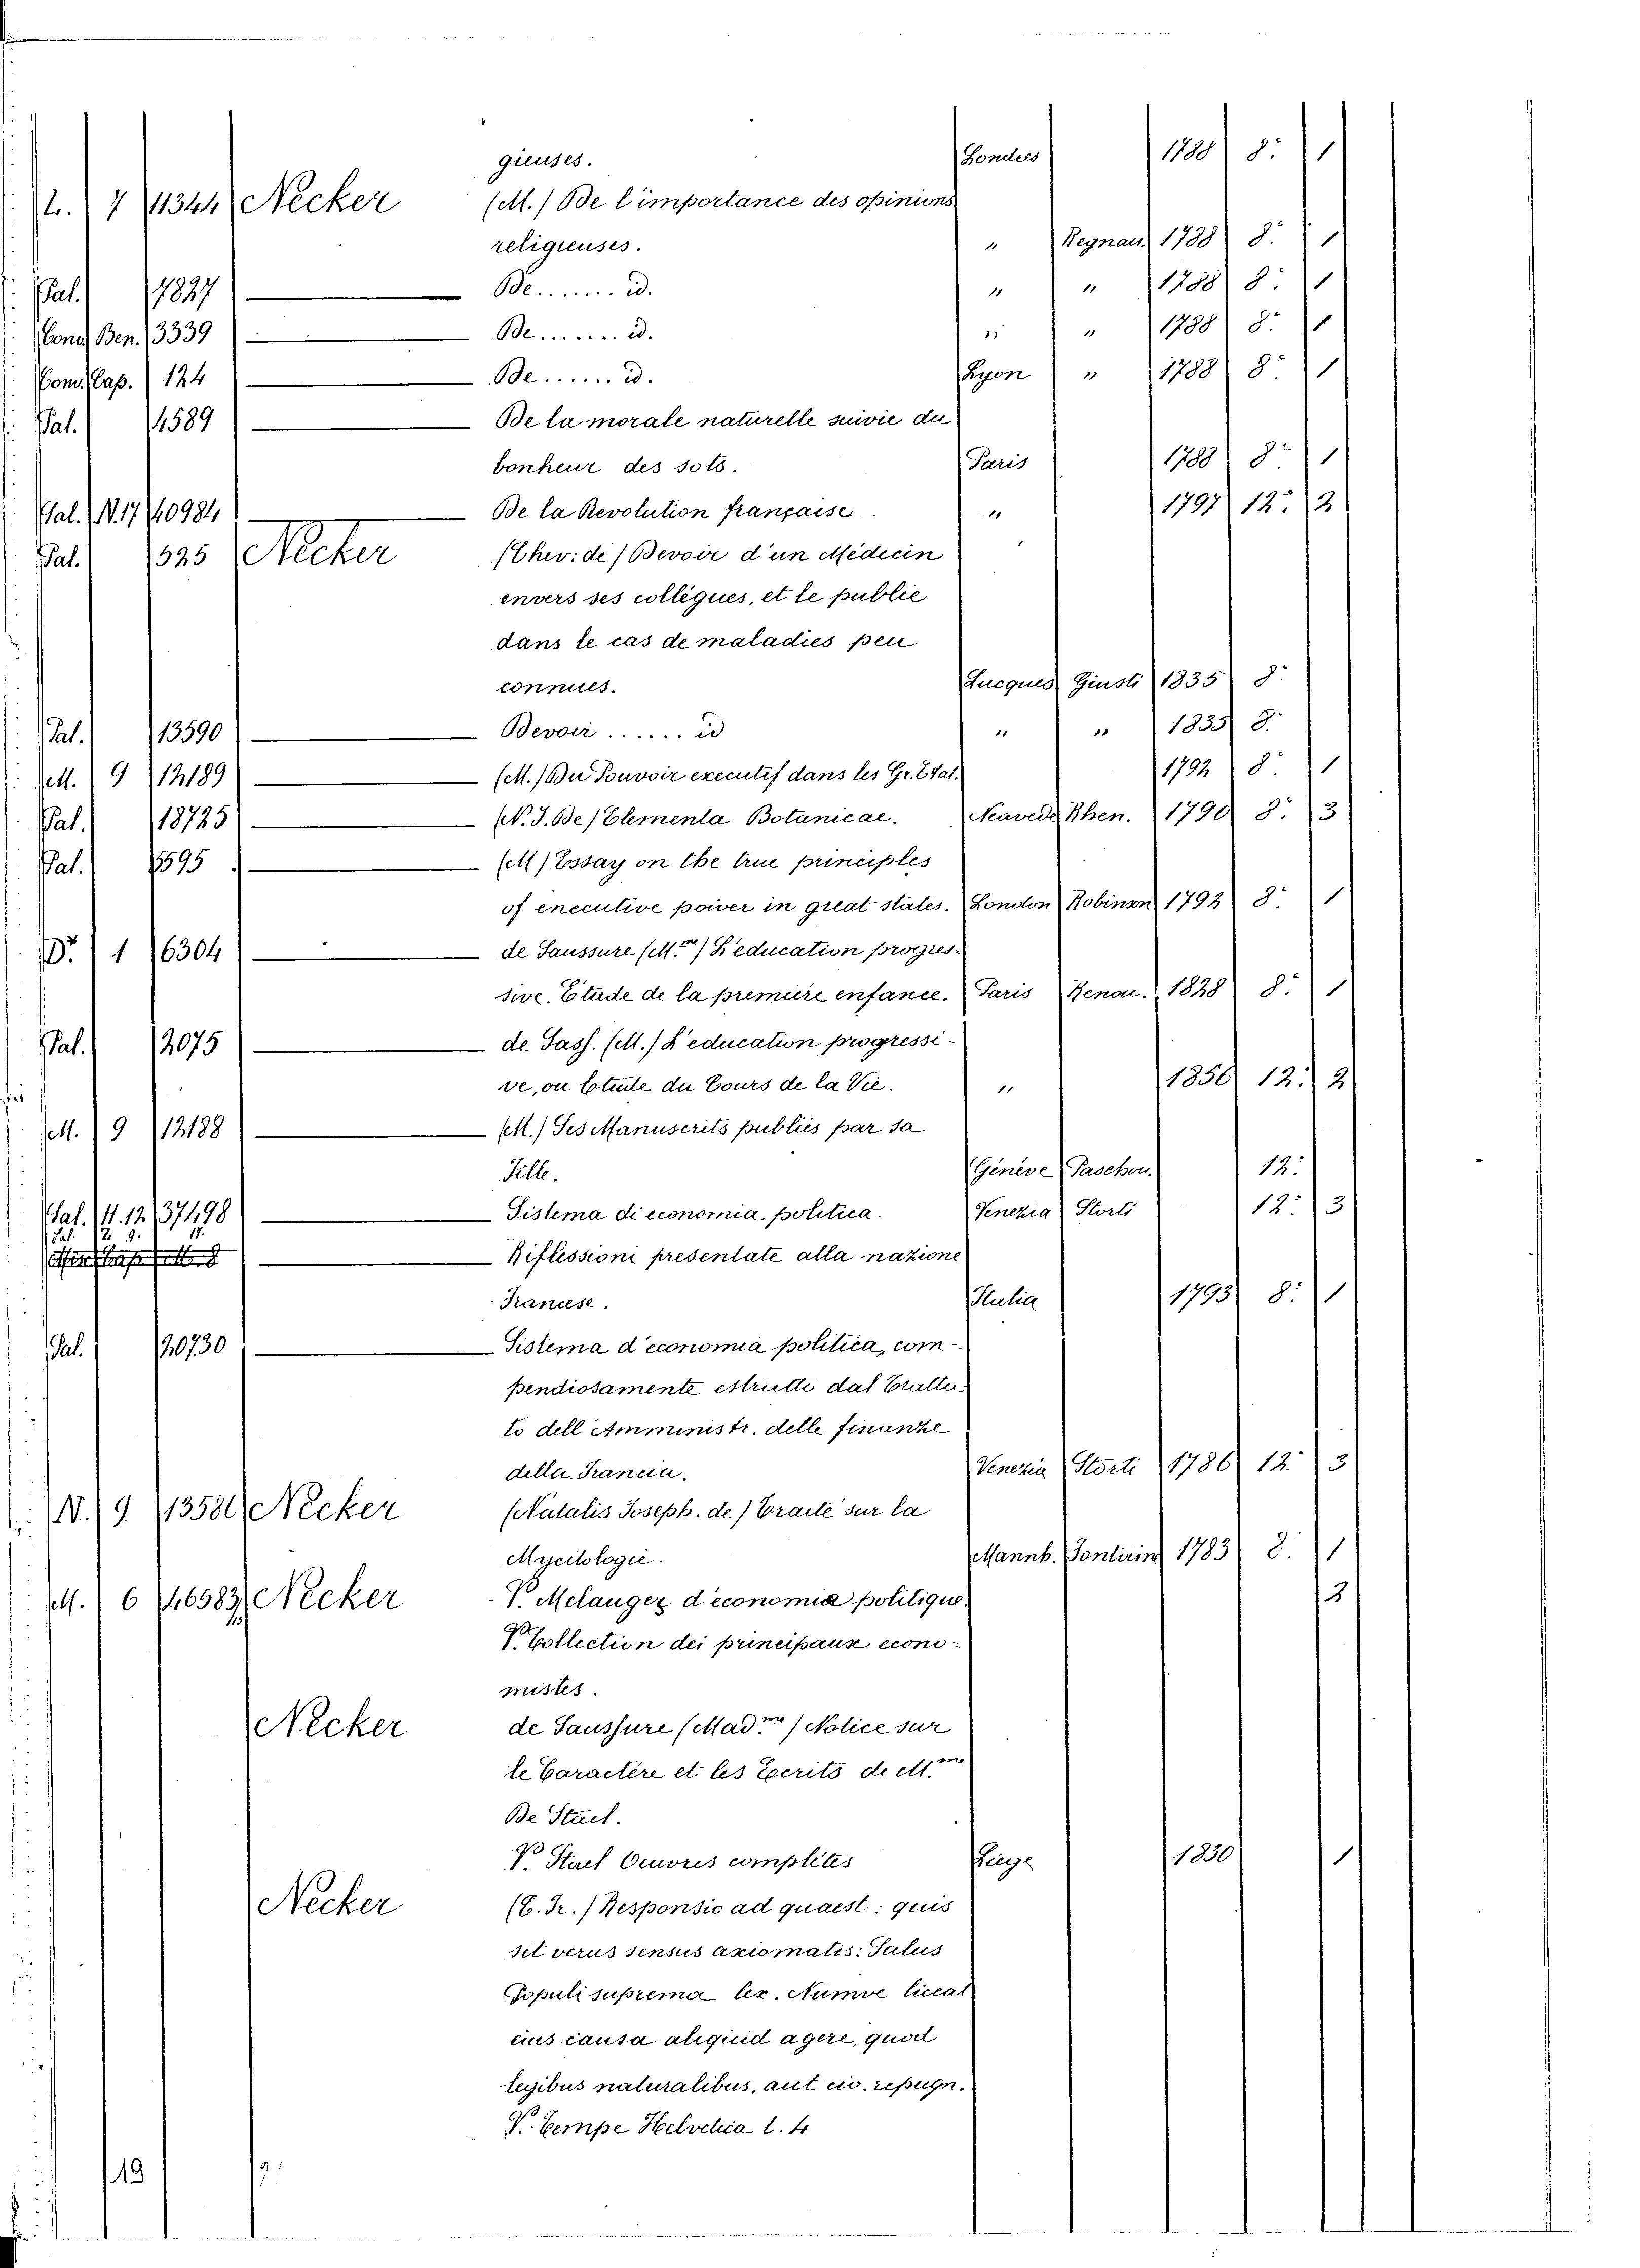 gieuses. Londres 1788 8: 1
L. 7 11344 Necker (M.) De l'importance des opinions
religieuses. " Regnau. 1788 8: 1
Pal. 7827 De........ id. " " 1788 8: 1
Cong. Ben. 3339 De........ id. " " 1788 8: 1
Com. Cap. 124 De....... id. Lyon " 1788 8: 1
Pal. 4589 De la morale naturelle suivie du
bonheur des sots. Paris 1788 8: 1
Pal. N.17 40984 De la Revolution française " 1797 12: 2
Pal. 1525 Necker (Chev: de) Devoir d'un Médecin
envers ses collégues, et le public
dans le cas de maladies peu
connues. Lucques Giusti 1835 8:
Pal. 13590 Devoir ...... id " " 1835 8:
M. 9 12189 (M.) Du Pouvoir executif dans les Gr. Etat. 1792 8: 1
Pal. 18725 (N. J. De) Elementa Botanicae. Neavede Rhen. 1790 8: 3
Pal. 1595 (M) Essay on the true principles
of enecutive power in great states. London Robinsn 1792 8: 1
D. 1 6304 de Saussure (M.me) L'education progres-
sive. Etude de la premiere enfance. Paris Renou. 1828 8: 1
Pal. 2075 de Sass. (M.) L'education progressi-
ve, ou Etude du Cours de la Vie. " 1856 12: 2
M. 9 12188 (M.) Ses Manuscrits publiés par sa
Fille. Genève Paschou. 12:
Pal. 4. 12 37498 Sistema di economia politica. Venezia Storti 12: 3
Riflessioni presentate alla nazione
Francese. Italia 1793 8: 1
Pal. 20730 Sistema d'economia politica, com-
pendiosamente estrutte dal Tratta-
to dell'Amministr. delle finanze
della Francia. Venezia Storti 1786 12: 3
N. 9 13580 Necker (Natalis Joseph. de) Traité sur la
Mycitologie. Mannh. Fontain 1783 8: 1
M. 6 46583 Necker V. Melangez d'economia politique. 2
V. Collection dei principaux econo-
mistes.
Necker de Saussure (Mad.me) Notice sur
le Caractère et les Ecrits de M.me
De Stael.
V. Stael Oeuvres complètes Liege 1830 1
Necker (C. Fr.) Responsio ad quaest: quis
sit verus sensus axiomatis: Salus
Populi suprema lex. Numve liceat
eius causa aliquid agere, quod
legibus naturalibus, aut civ. repugn.
V. Tempe Helvetica t. 4
19